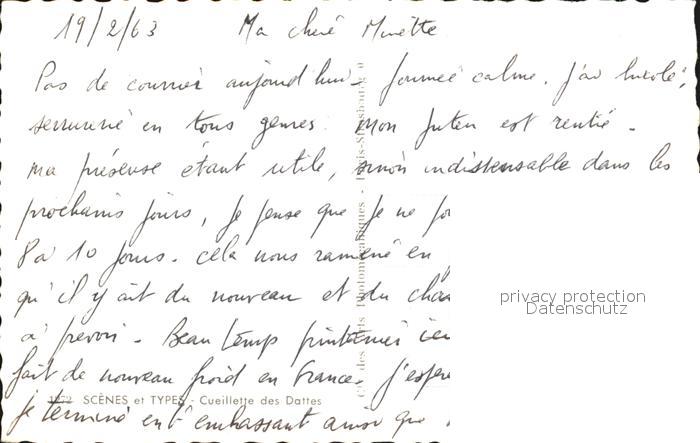 19/2/63 Ma cheré Minette
Pas de courrier aujourd'hui - Journeé calme. J'ai bricolé,
serrurerié en tous genres. Mon juteu est rentré -
Ma présense étant utile, sinon indistensable dans les
prochains jours, je pense que je ne
8 a 10 jours. cela nous ramené en
qu'il y ait du nouveau et du
a prevoir - Beau temps printemnier
fait de nouveau froid en France. J'espere
je terminé en t'embrassant ainsi que
1272 SCÈNES et TYPES - Cueillette des Dattes
privacy protection
Datenschutz